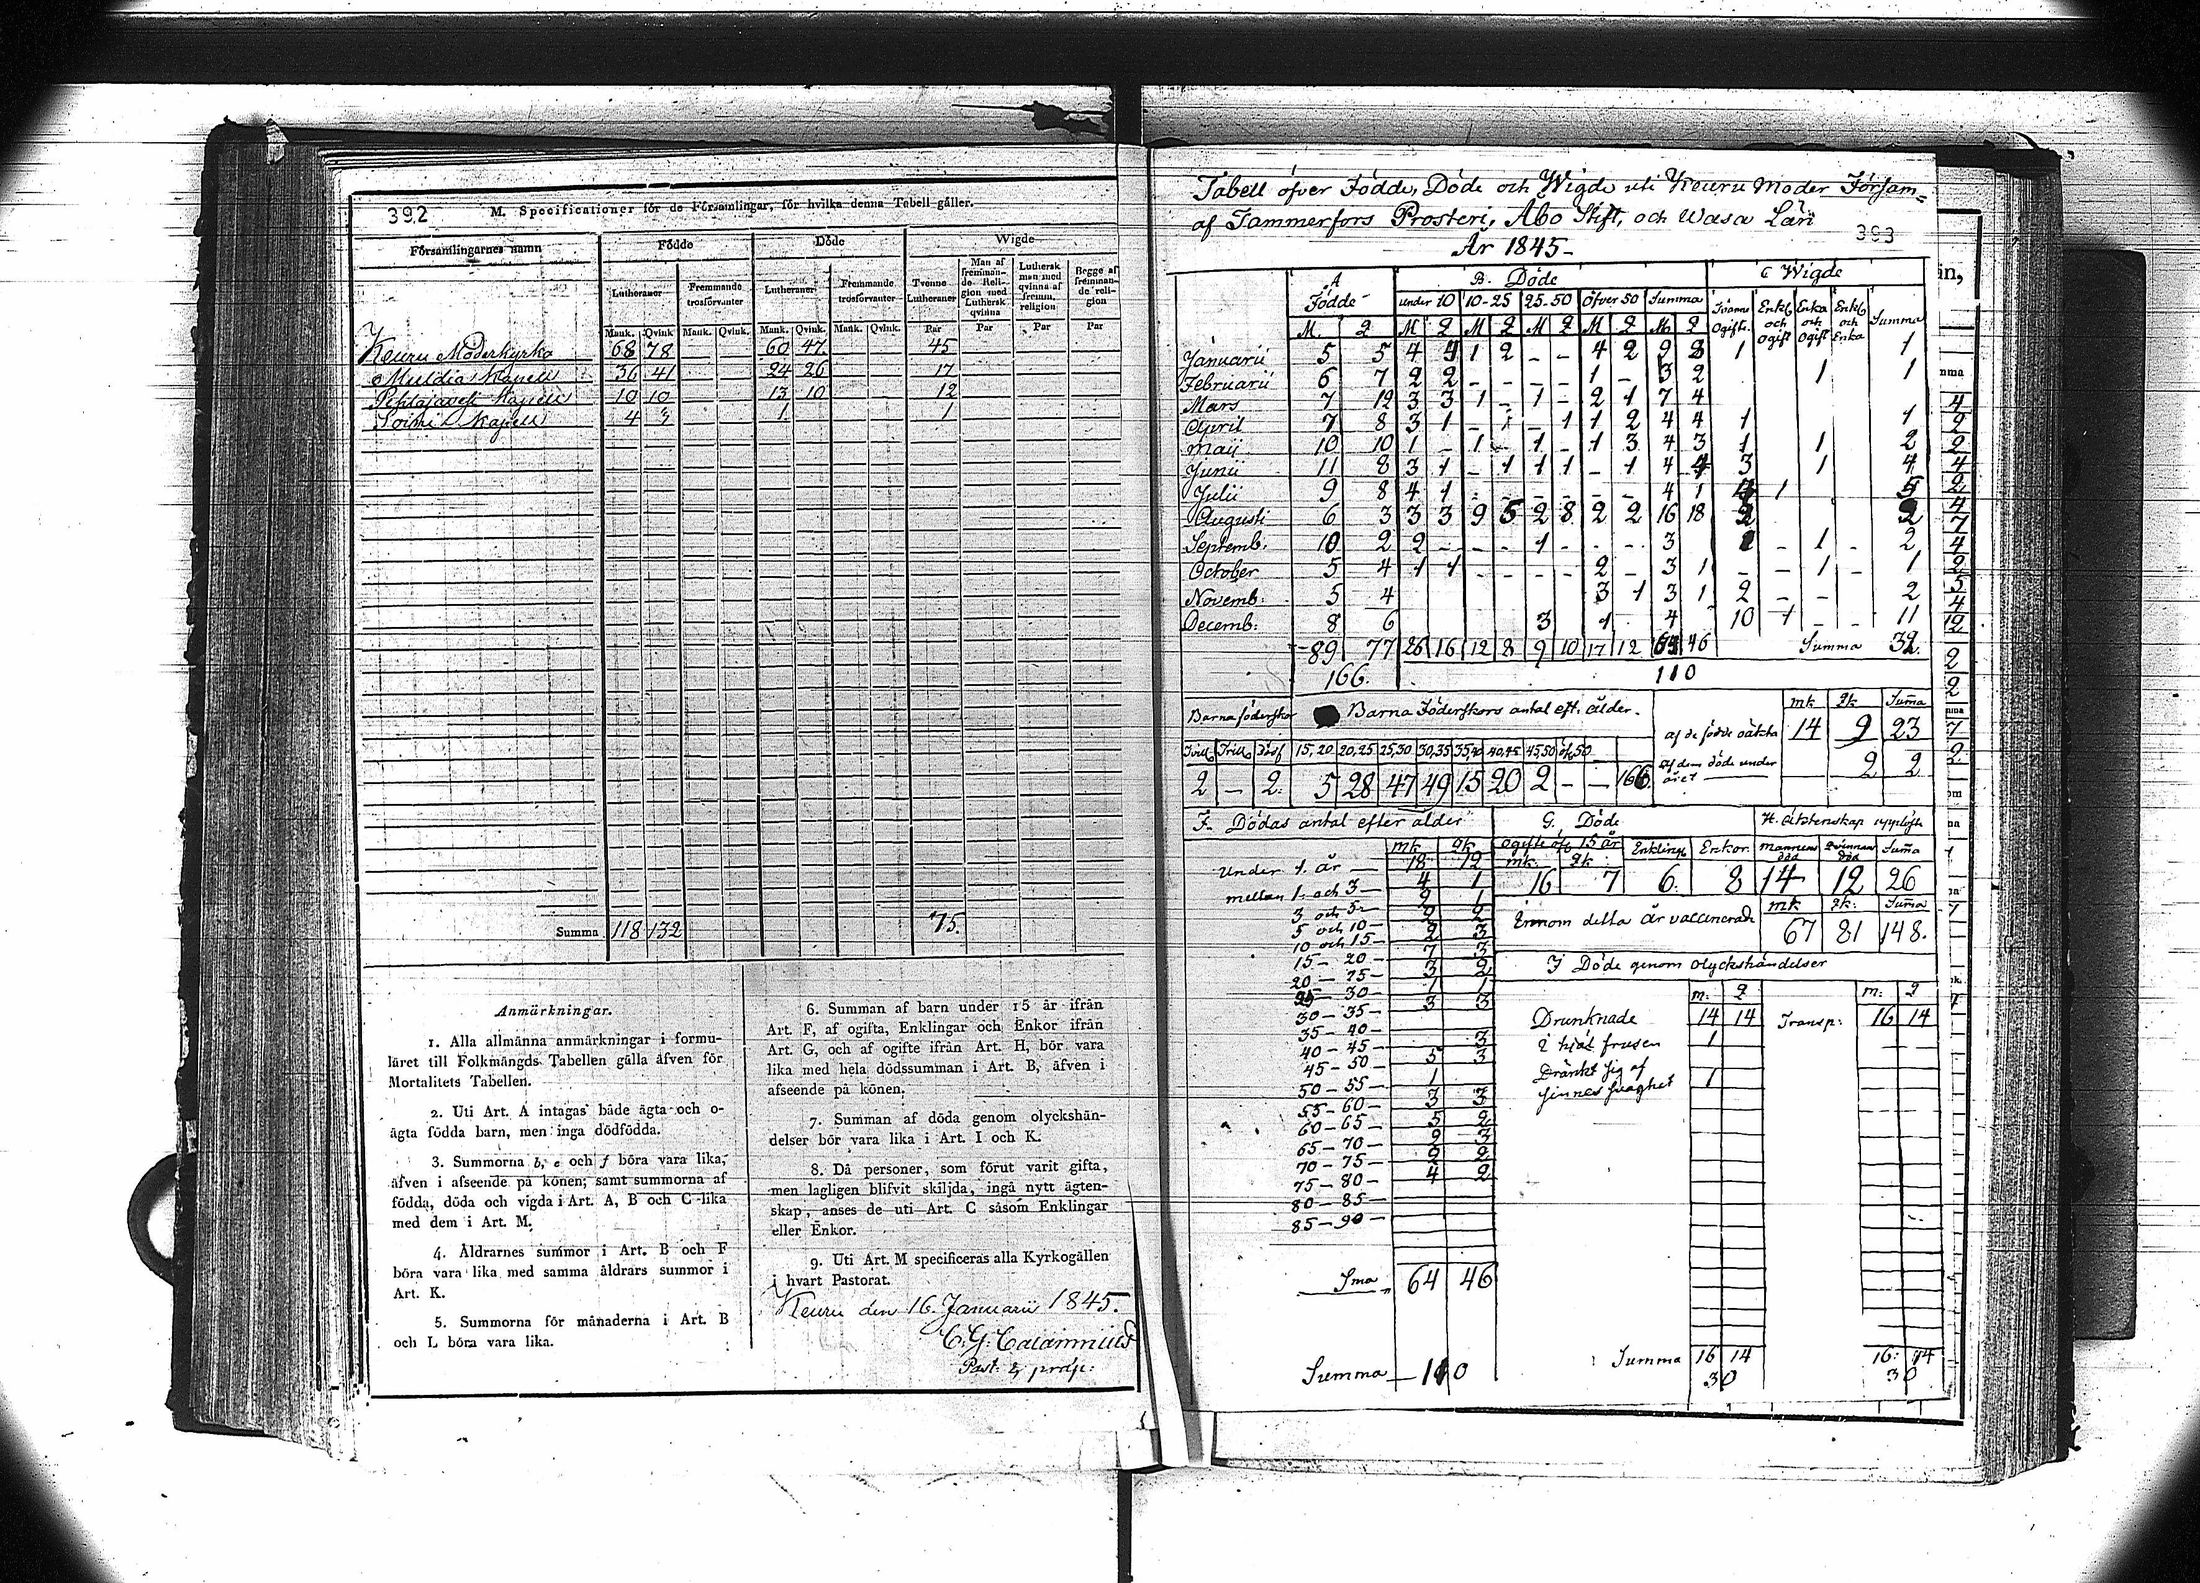 392 M. Specificationer för de Församlingar, för hvilka denna Tabell gäller.
Församlingarnes namn Födde Döde Wigde
Lutheraner Fremmande trosförvanter Lutheraner Fremmande trosförvanter Tvenne Lutheraner Man af fremmande Religion med Luthersk qvinna Luthersk man med qvinna af fremm. religion Begge af fremmande religion
Mank. Qvink Mank. Qvink. Mank. Qvink. Mank. Qvink. Par Par Par Par
Keuru Moderkyrka 68 78 60 47 45
Muldia Kapell 36 41 24 26 17
Pihlajavesi Kapell 10 10 13 10 12
Soini Kapell 4 3 1 1
Summa 118 132 75.
Anmärkningar.
1. Alla allmänna anmärkningar i formu-
läret till Folkmängds Tabellen gälla äfven för
Mortalitets Tabellen.
2. Uti Art. A intagas både ägta och o-
ägta födda barn, men inga dödfödda.
3. Summorna b, e och f böra vara lika,
äfven i afseende på könen; samt summorna af
födda, döda och vigda i Art. A, B och C lika
med dem i Art. M.
4. Åldrarnes summor i Art. B och F
böra vara lika med samma åldrars summor i
Art. K.
5. Summorna för månaderna i Art. B
och L böra vara lika.
6. Summan af barn under 15 år ifrån
Art. F, af ogifta, Enklingar och Enkor ifrån
Art. G, och af ogifte ifrån Art. H, bör vara
lika med hela dödssumman i Art. B, äfven i
afseende på könen.
7. Summan af döda genom olyckshän-
delser bör vara lika i Art. I och K.
8. Då personer, som förut varit gifta,
men lagligen blifvit skiljda, ingå nytt ägten-
skap, anses de uti Art. C såsom Enklingar
eller Enkor.
9. Uti Art. M specificeras alla Kyrkogällen
i hvart Pastorat.
Keuru den 16. Januarii 1845.
C. G. Calamnius
Past. & prop:
Tabell öfver Födde, Döde och Wigde uti Keuru Moder Församl
af Tammerfors Prosteri, Åbo Stift, och Wasa Län
År 1845- 393
A Födde B. Döde C Wigde
under 10 10-25 25-50 öfver 50 Summa Tvänne Ogifte. Enkl. och Ogift Enka och Ogift Enkl. och Enka Summa
M. Q M Q M Q M Q M Q M Q
Januarii 5 5 4 4 1 2 - - 4 2 9 8 1 1
Februarii 6 7 2 2 - - - - 1 - 3 2 1 1
Mars 7 12 3 3 1 - 1 - 2 1 7 4
April 7 8 3 1 - 1 - 1 1 2 4 4 1 1
Maij 10 10 1 - 1 - 1 - 1 3 4 3 1 1 2
Junii 11 8 3 1 - 1 1 1 - 1 4 4 3 1 4
Julii 9 8 4 1 - - - - - - 4 1 4 1 5
Augusti 6 3 3 3 9 5 2 8 2 2 16 18 2 2
Septemb. 10 2 2 - - - 1 - - - 3 1 - 1 - 2
October 5 4 1 1 - - - - 2 - 3 1 - - 1 - 1
Novemb. 5 4 3 1 3 1 2 - - 2
Decemb: 8 6 3 1 4 10 1 - - 11
89 77 26 16 12 8 9 10 17 12 64 46 Summa 32.
166. 110
Barnaföderskor Barna Föderskors antal eft. ålder.
Tvill Trill Dödf 15,20 20,25 25,30 30,35 35,40 40,45 45,50 öf 50
2 - 2. 5 28 47 49 15 20 2 - - 166.
mk Qk Suma
af de födde oäkta 14 9 23
af dem döde under året 2 2
F. Dödas antal efter ålder
mk qk
Under 1. år 18 12
mellan 1. och 3 4 1
3 och 5 2 1
5 och 10 2 2
10 och 15 2 3
15 - 20 7 3
20 - 25 3 2
25 - 30 1 1
30 - 35 3 3
35 - 40
40 - 45 3
45 - 50 5 3
50 - 55 1
55 - 60 3 3
60 - 65 5 2
65 - 70 2 3
70 - 75 2 2
75 - 80 4 2
80 - 85
85 - 90
Sma 64 46
Summa 110
G. Döde
Ogifte öfv 15 år Enklingr Enkor.
mk: Qk
16 7 6. 8
H. Äktenskap upplöste
mannens död qvinnans död Suma
14 12 26
mk Qk: Suma
Innom detta år vaccinerade 67 81 148.
J Döde genom olyckshändelser
m: Q m: Q
Drunknade 14 14 Transp: 16 14
ihjäl frusen 1
Dränkt sig af
sinnes svaghet 1
Summa 16 14 16: 14
30 30